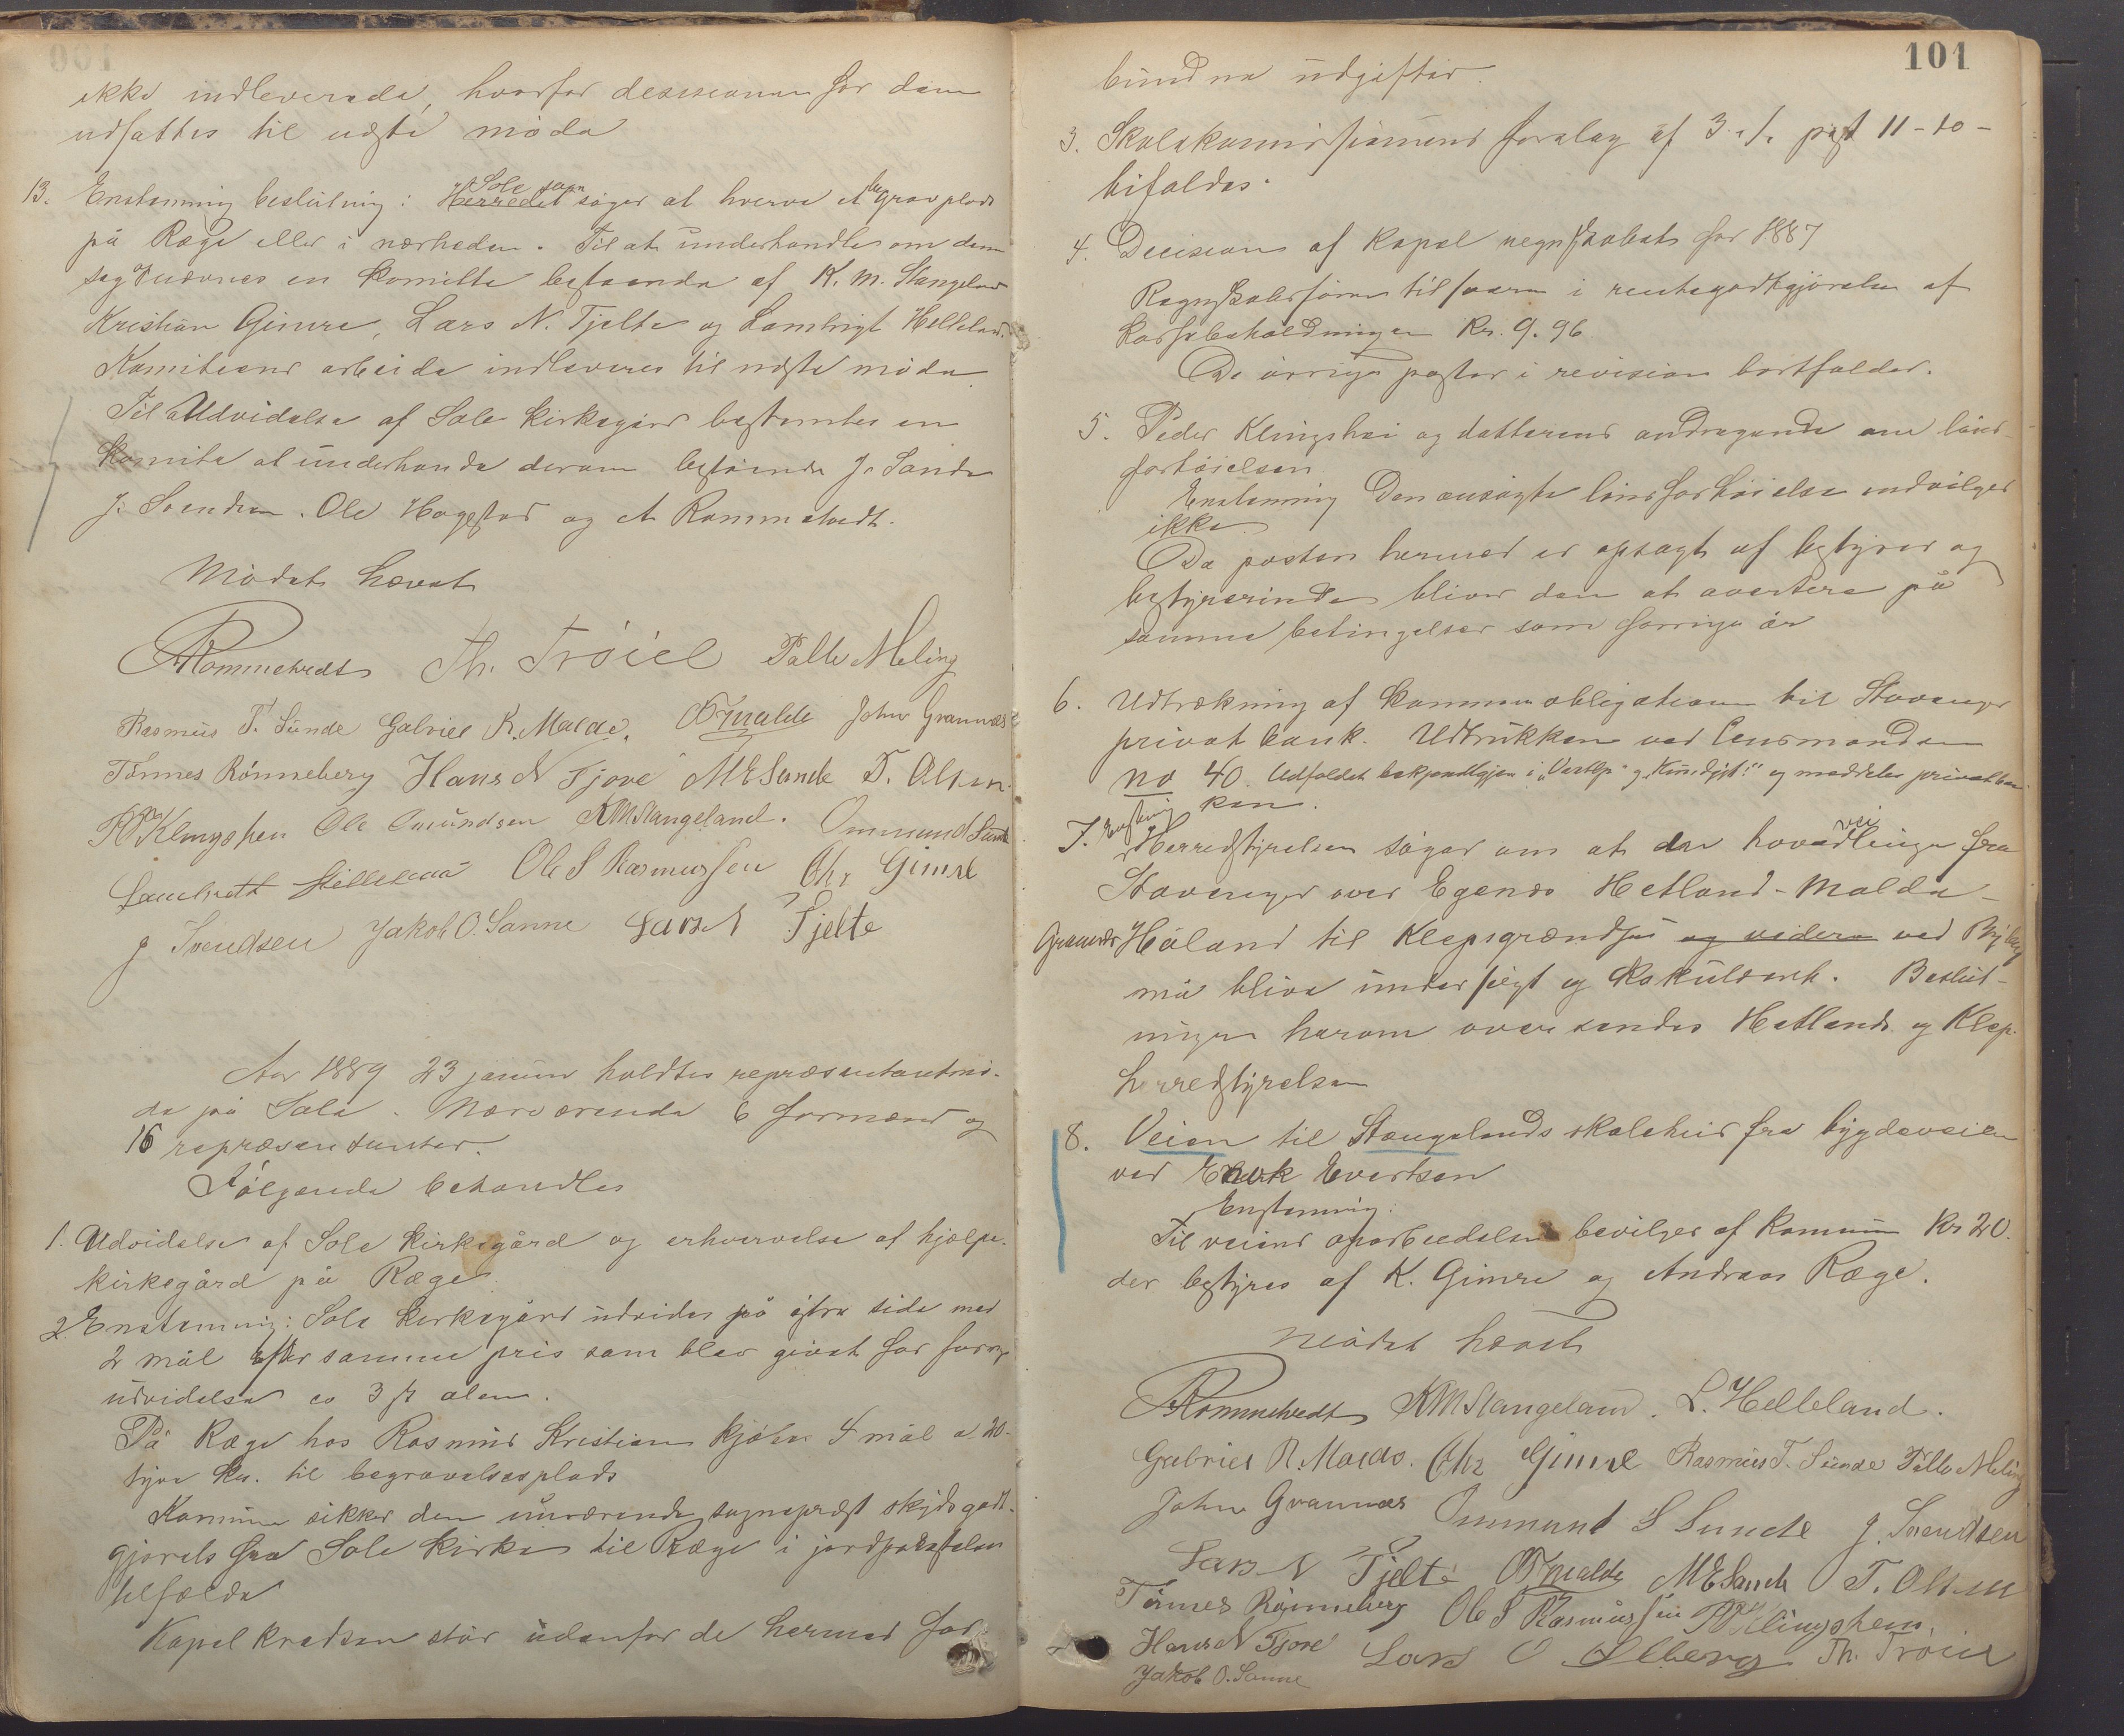 ikke indleverede, hvorfor desisionen for dem
udsattes til næste møde
13. Enstemmig beslutning: Sole som søger at hverve et begravplads
på Ræge eller i nærheden. Til at underhandle om denne
sag nævnes en komitte bestaaende af K. M. Stangeland
Kristian Gimre, Lars N. Tjelte og Lambrigt Helleland.
Komiteens arbeide indleveres til næste møde
Til Udvidelse af Sole kirkegård bestemtes en
komite at underhandle derom bestående J. Sande
J. Svendsen. Ole Hogstad og A Rommetvedt.
Mødet hævet
A Rommetvedt Th. Tröiel Palle Meling
Rasmus T. Sunde Gabriel R. Malde. O Tjnalde John Grannæs
Tönnes Rönneberg Hans N Tjore M E Sande T. Olsen
P O Klingshei Ole Omundsen K M Stangeland. Ommund Sunde
Lambrett Helleland Ole S Rasmussen Chr Gimre
J Svendsen Jakob O. Sanne Lars N Tjelte
Aar 1889 23 januar holdtes repræsentantmø-
de på Sole. Nærværende 6 formænd og
16 repræsentanter.
Følgende behandles
1. Udvidelse af Sole kirkegård og erhvervelse af hjælpe-
kirkegård på Ræge
2 Enstemmig: Sole kirkegård udvides på østre side med
2 mål efter samme pris som blev givet for forrige
udvidelse co 3 ß alen.
På Ræge hos Rasmus Kristian kjøbes 4 mål a 20-
tyve kr. til begravelsesplads
Kommunen sikker den nuværende sogneprest skydsgodt-
gjørels fra Sole kirke til Ræge i jordpåkastelsen
tilfælde
Kapel kredsen står udenfor de hermed for-
101
bundne udgifter.
3. Skolekommissionens forslag af 3. post 11-10-
bifaldes.
4. Decision af kapel regnskabet for 1887
Regnskabsføren tilsvare i rentegodtgjørelse af
kassebeholdningen Kr. 9.96
De øvrige poster i revision bortfalder.
5. Peder Klingshei og datterens andragende om løns-
forhøielsen
Enstemmig Den ansøgte lønsforhøielse indvilges
ikke
Da posten hermed er opsagt af bestyrer og
bestyrerinde bliver den at avertere på
samme betingelser som forrige år
6. Udtrækning af kommunobligationen til Stavanger
privat bank. Udtrukken ved Lensmanden
no 40. Udfaldet bekjendtgjøres i "Vestlp" og "Kundgjt." og meddeles privatban-
ken.
7. Enstemmig
Herredstyrelsen søger om at den hovedveilinje fra
Stavanger over Egenæs Hetland-Malde-
Grannæs Håland til Klepsgrændse og videre ved Bybjerg
må blive undersøgt og kakuleret. Beslut-
ningen herom oversendes Hetlands og Klep
herredstyrelsen
8. Veien til Stangelands skolehus fra bygdeveien
ved Enok Evertsen
Enstemmig:
Til veiens oparbeidelse bevilges af komunen kr 20.
der bestyres af K. Gimre og Andreas Ræge.
Mødet hævet
A Rommetvedt K M Stangeland. L. Helleland.
Gabriel R. Malde. Chr Gimre Rasmus T. Sunde Palle Meling
John Grannæs Ommund S Sunde J. Svendsen
Lars N Tjelte O Tjnalde M E Sande T. Olsen
Tönnes Rönneberg Ole S Rasmussen P O Klingshem,
Hans N Tjore Lars O Olberg Th. Tröiel
Jakob O. Sanne